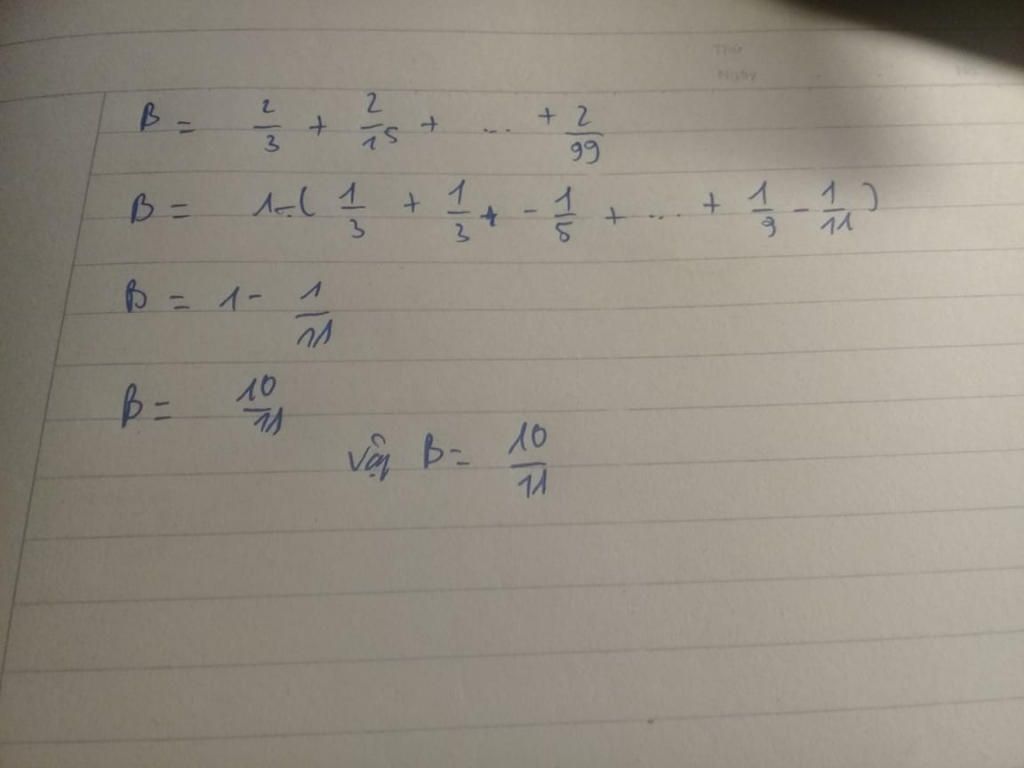 Thứ
Ngày No.
B = 2/3 + 2/15 + ... + 2/99
B = 1-( 1/3 + 1/3 + - 1/5 + ... + 1/9 - 1/11 )
B = 1 - 1/11
B = 10/11
Vậy B = 10/11